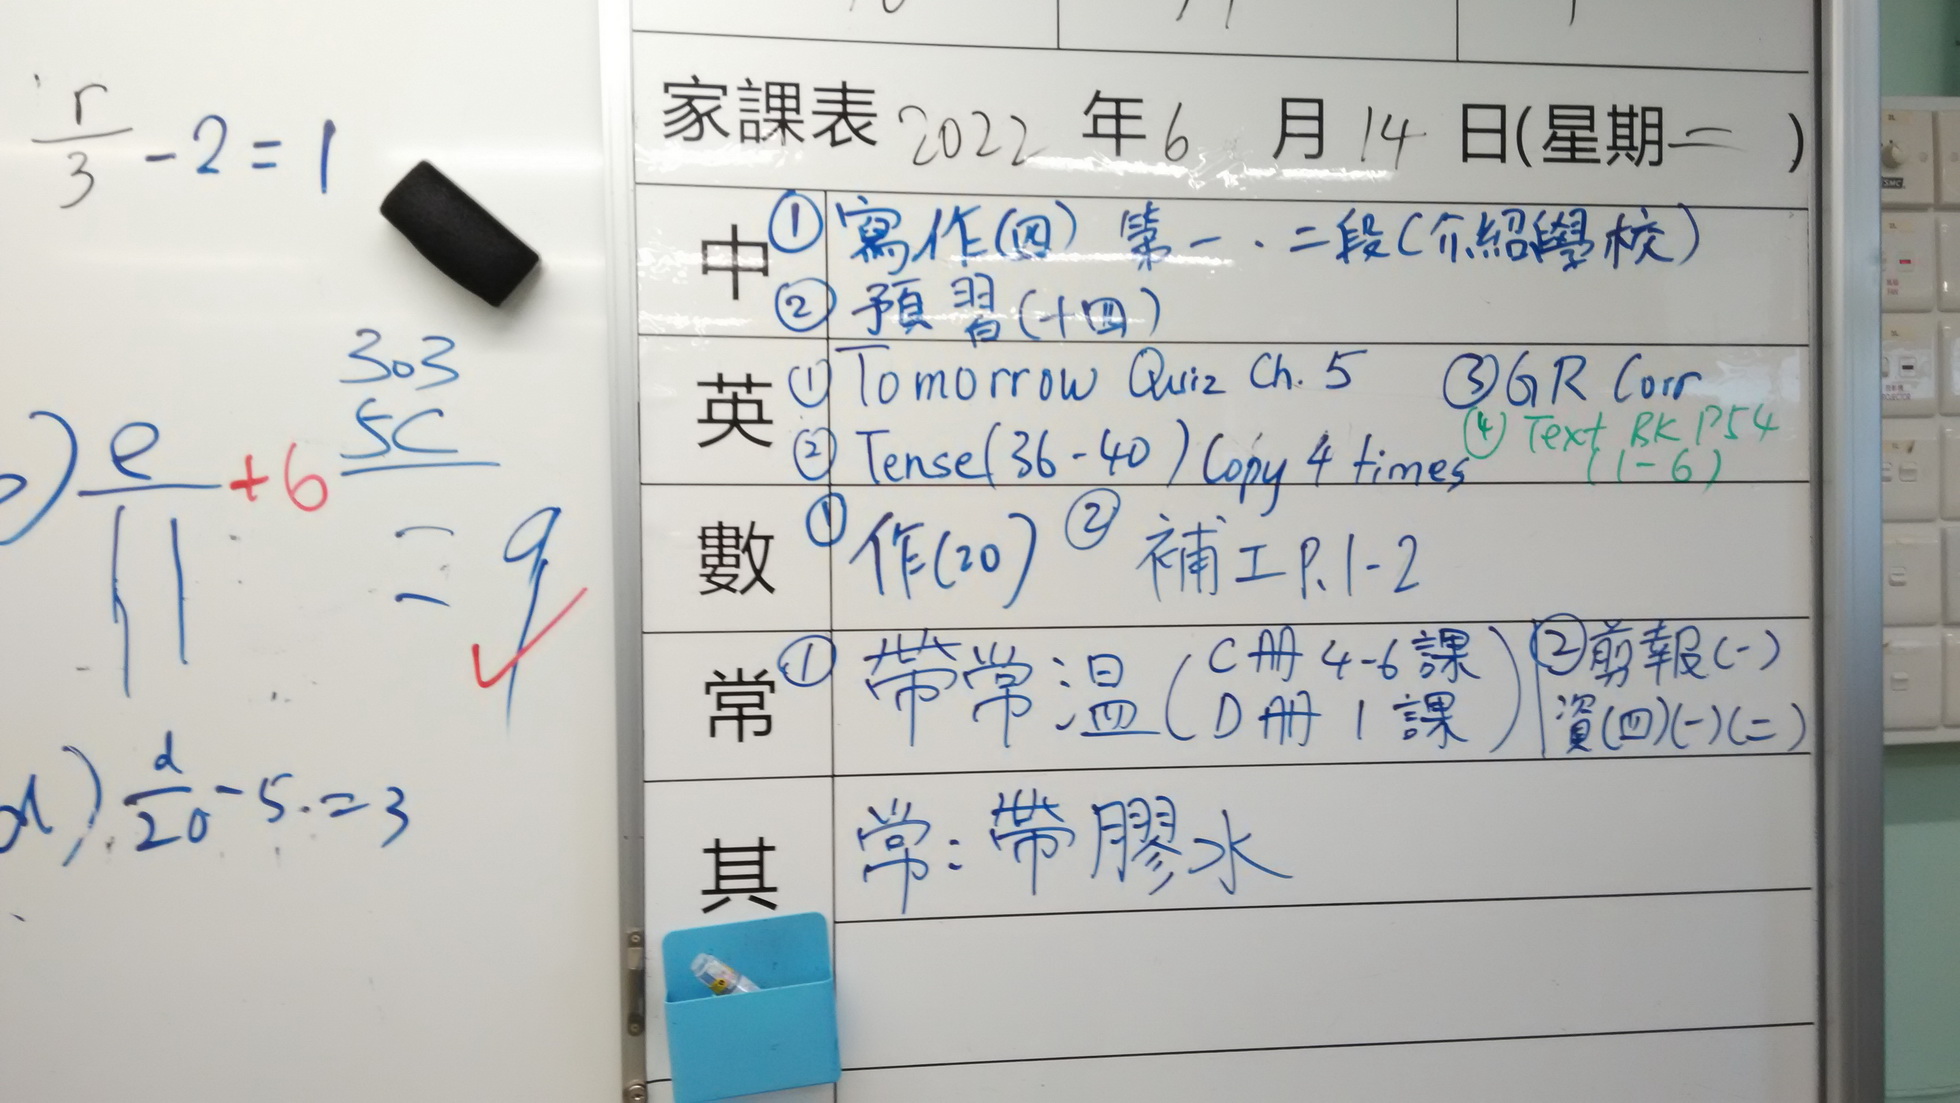 r/3 - 2 = 1
303
5C
e/11 + 6 = 9
d) d/20 - 5 = 3
家課表 2022 年 6 月 14 日(星期二)
中 ① 寫作(四) 第一.二段(介紹學校)
② 預習(十四)
英 ① Tomorrow Quiz Ch. 5 ③ GR Corr
② Tense(36-40) Copy 4 times ④ Text BK P54
(1-6)
數 ① 作(20) ② 補工P.1-2
常 ① 帶常溫(C冊 4-6課 ② 剪報(一)
D冊 1課) 資(四)(一)(二)
其 常:帶膠水